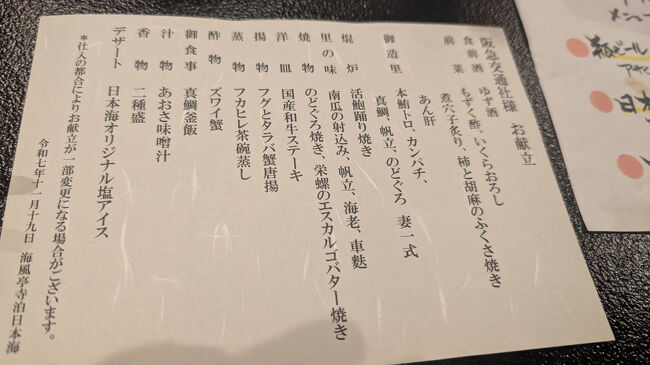 阪急交通社様 お献立
食前酒 ゆず酒
前菜 もずく酢、いくらおろし
煮穴子炙り、柿と胡麻のふくさ焼き
あん肝
御造里 本鮪トロ、カンパチ、
真鯛、帆立、のどぐろ 妻一式
焜炉 活鮑踊り焼き
里の味 南瓜の射込み、帆立、海老、車麩
焼物 のどぐろ焼き、栄螺のエスカルゴバター焼き
洋皿 国産和牛ステーキ
揚物 フグとタラバ蟹唐揚
蒸物 フカヒレ茶碗蒸し
酢物 ズワイ蟹
御食事 真鯛釜飯
汁物 あおさ味噌汁
香物 二種盛
デザート 日本海オリジナル塩アイス
*仕入の都合によりお献立が一部変更になる場合がございます。
令和七年十一月十九日 海風亭寺泊日本海
メニュー
ビール